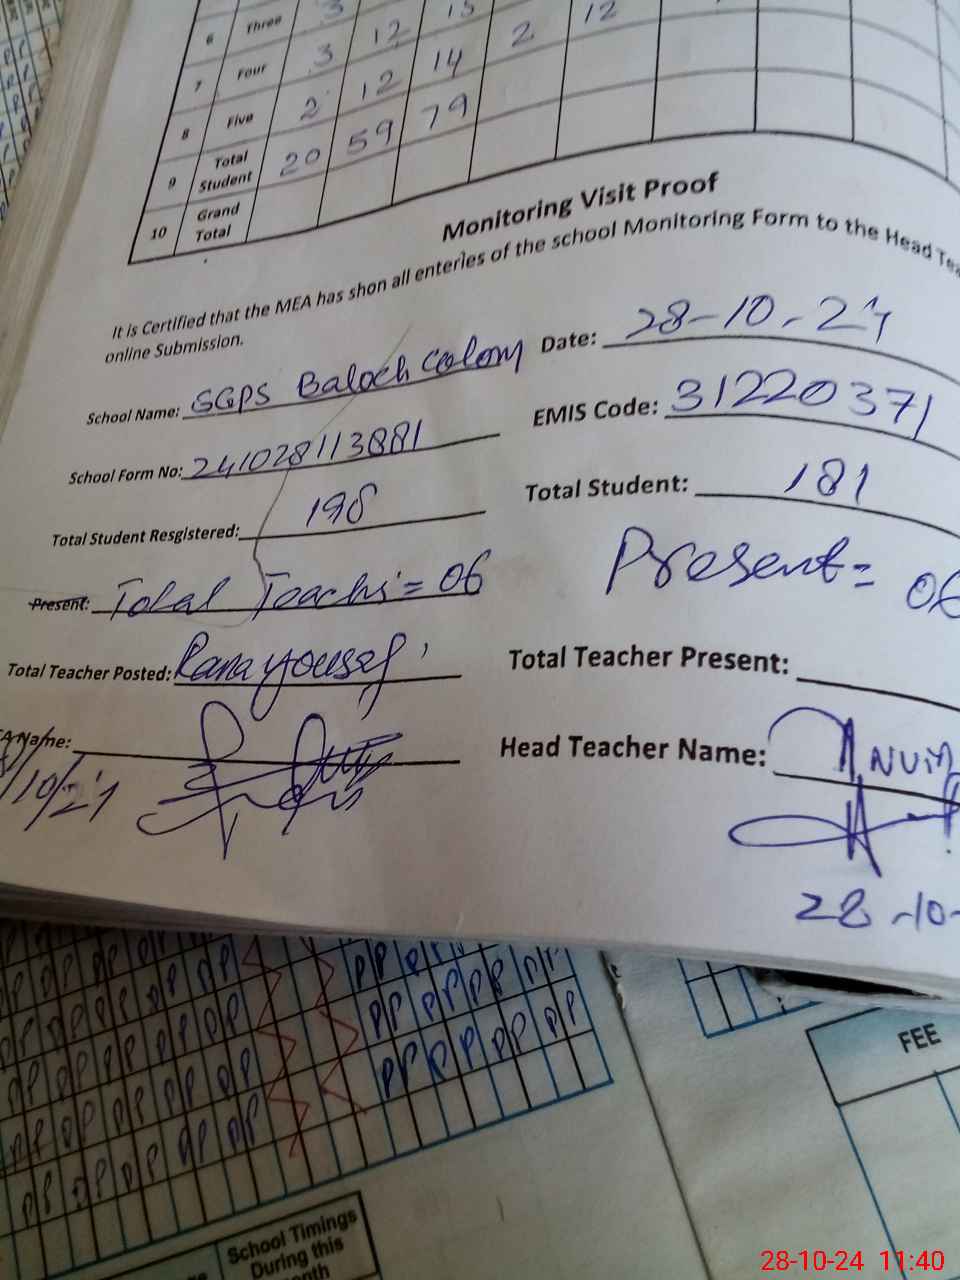 6 Three 3 12 15
7 Four 3 12 14 2 12
8 Five 2 12 14
9 Total Student 20 59 79
10 Grand Total
Monitoring Visit Proof
It is Certified that the MEA has shon all enteries of the school Monitoring Form to the Head Tea
online Submission.
School Name: GGPS Baloch Colony Date: 28-10-24
School Form No: 241028113881 EMIS Code: 31220371
Total Student Resgistered: 198 Total Student: 181
Present: Total Teachi = 06 Present = 06
Total Teacher Posted: Rana yousaf Total Teacher Present:
A Name: Head Teacher Name:
/10/24
28-10-
FEE
School Timings
During this
onth
28-10-24 11:40